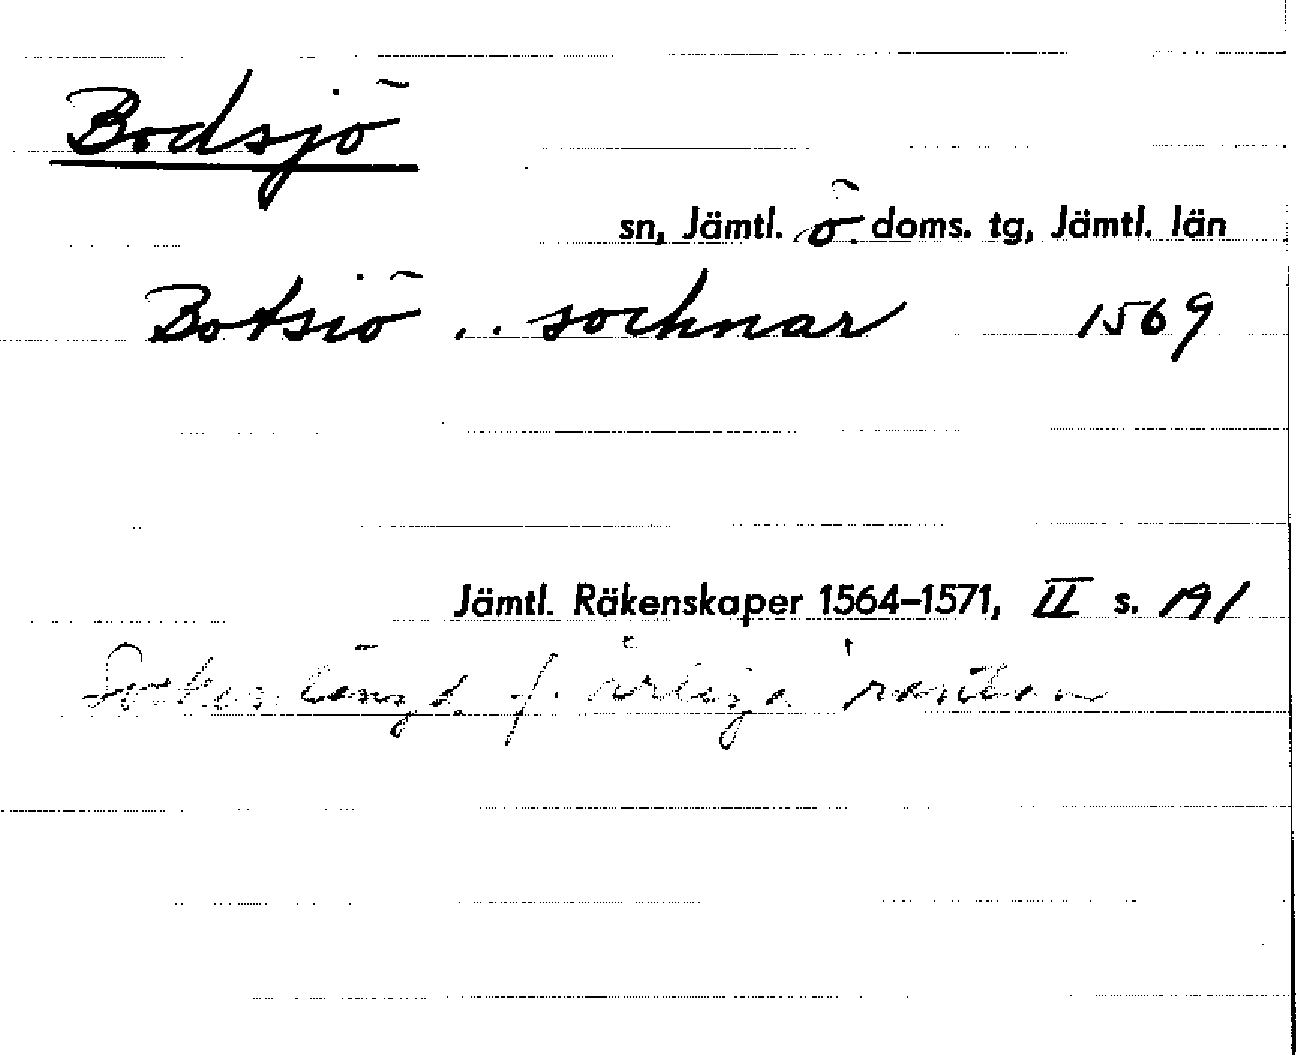 Bodsjö
sn, Jämtl. ö. doms. tg, Jämtl. län
Botsiö .. sochnar 1569
Jämtl. Räkenskaper 1564–1571, II s. 191
Sockenlängd f. årliga räntan